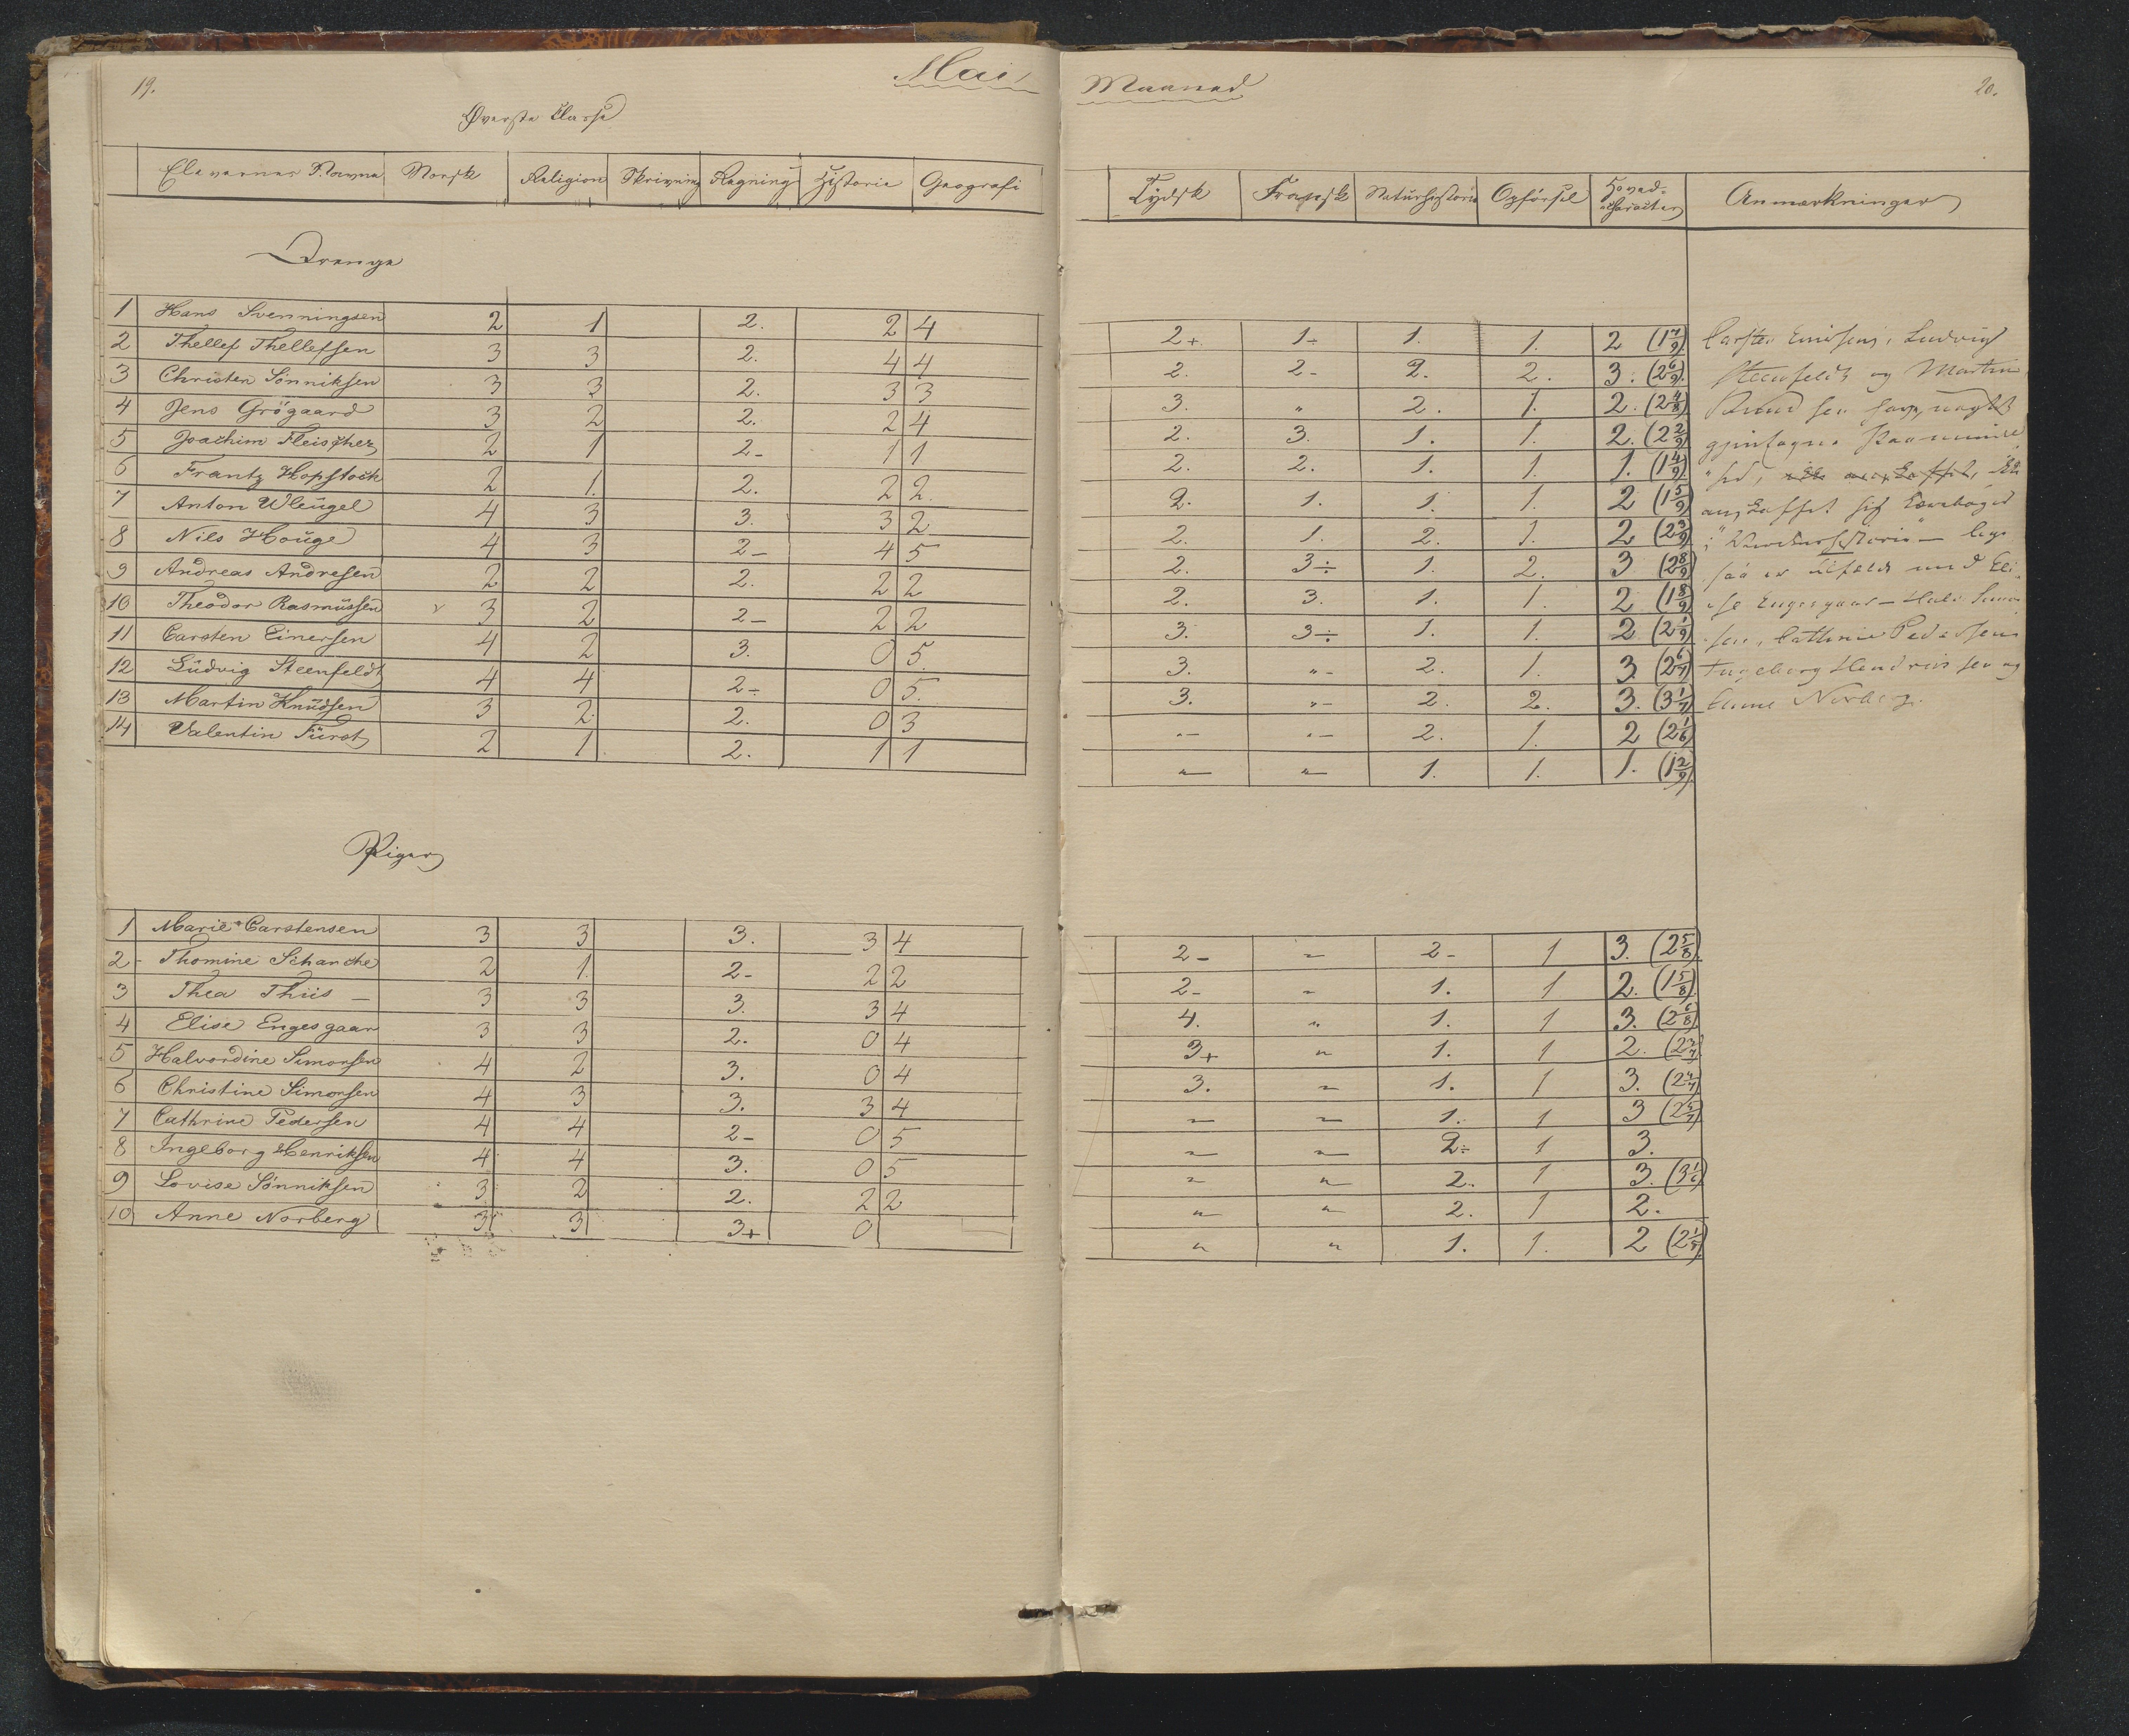 19.
Mai
Øverste Classe
Elevernes Navne Norsk Religion Skrivning Regning Historie Geografi
Drenge
1 Hans Svenningsen 2 1 2. 2 4
2 Thellef Thellefsen 3 3 2. 4 4
3 Christen Sönniksen 3 3 2. 3 3
4 Jens Grögaard 3 2 2. 2 4
5 Joachim Fleischer 2 1 2- 1 1
6 Frantz Hopstock 2 1. 2. 2 2.
7 Anton Wleugel 4 3 3. 3 2
8 Nils Houge 4 3 2- 4 5
9 Andreas Andresen 2 2 2. 2 2
10 Theodor Rasmussen 3 2 2- 2 2
11 Carsten Einersen 4 2 3. 0 5.
12 Ludvig Steenfeldt 4 4 2÷ 0 5.
13 Martin Knudsen 3 2 2. 0 3
14 Valentin Fürst 2 1. 2. 1 1
Piger
1 Marie Carstensen 3 3 3. 3 4
2 Thomine Schanche 2 1. 2- 2 2
3 Thea Thiis - 3 3 3. 3 4
4 Elise Engesgaar 3 3 2. 0 4
5 Halvordine Simonsen 4 2 3. 0 4
6 Christine Simonsen 4 3 3. 3 4
7 Cathrine Pedersen 4 4 2- 0 5
8 Ingeborg Henriksen 4 4 3. 0 5
9 Lovise Sönniksen 3 2 2. 2 2
10 Anne Norberg 3 3 3+ 0
Maaned
20.
Tydsk Fransk Naturhistorie Opförsel Hoved-character Anmærkninger
2+ 1÷ 1. 1. 2 (1 7/9)
2. 2- 2. 2. 3. (2 6/9)
3. " 2. 1. 2. (2 4/8)
2. 3. 1. 1. 2. (2 2/9)
2. 2. 1. 1. 1. (1 4/9)
2. 1. 1. 1. 2 (1 5/9)
2. 1. 2. 1. 2 (2 3/9)
2. 3÷ 1. 2. 3 (2 8/9)
2. 3. 1. 1. 2 (1 8/9)
3. 3÷ 1. 1. 2 (2 1/9)
3. "- 2. 1. 3 (2 6/7)
3. "- 2. 2. 3. (3 1/7)
"- "- 2. 1. 2 (2 1/6)
" " 1. 1. 1. (1 2/9)
Carsten Einersen, Ludvig
Steenfeldt og Martin
Knudsen
Elise Engesgaar - Halv Simon
sen, Cathrine Pedersen
Ingeborg Hendriksen og
Anne Norberg.
2- " 2- 1 3. (2 5/8)
2- " 1. 1 2. (1 5/8)
4. " 1. 1 3. (2 6/8)
3+ " 1. 1 2.
3. " 1. 1 3. (2 4/7)
" " 1. 1 3
" " 2÷ 1 3.
" " 2. 1 3. (3 1/6)
" " 2. 1 2.
" " 1. 1. 2